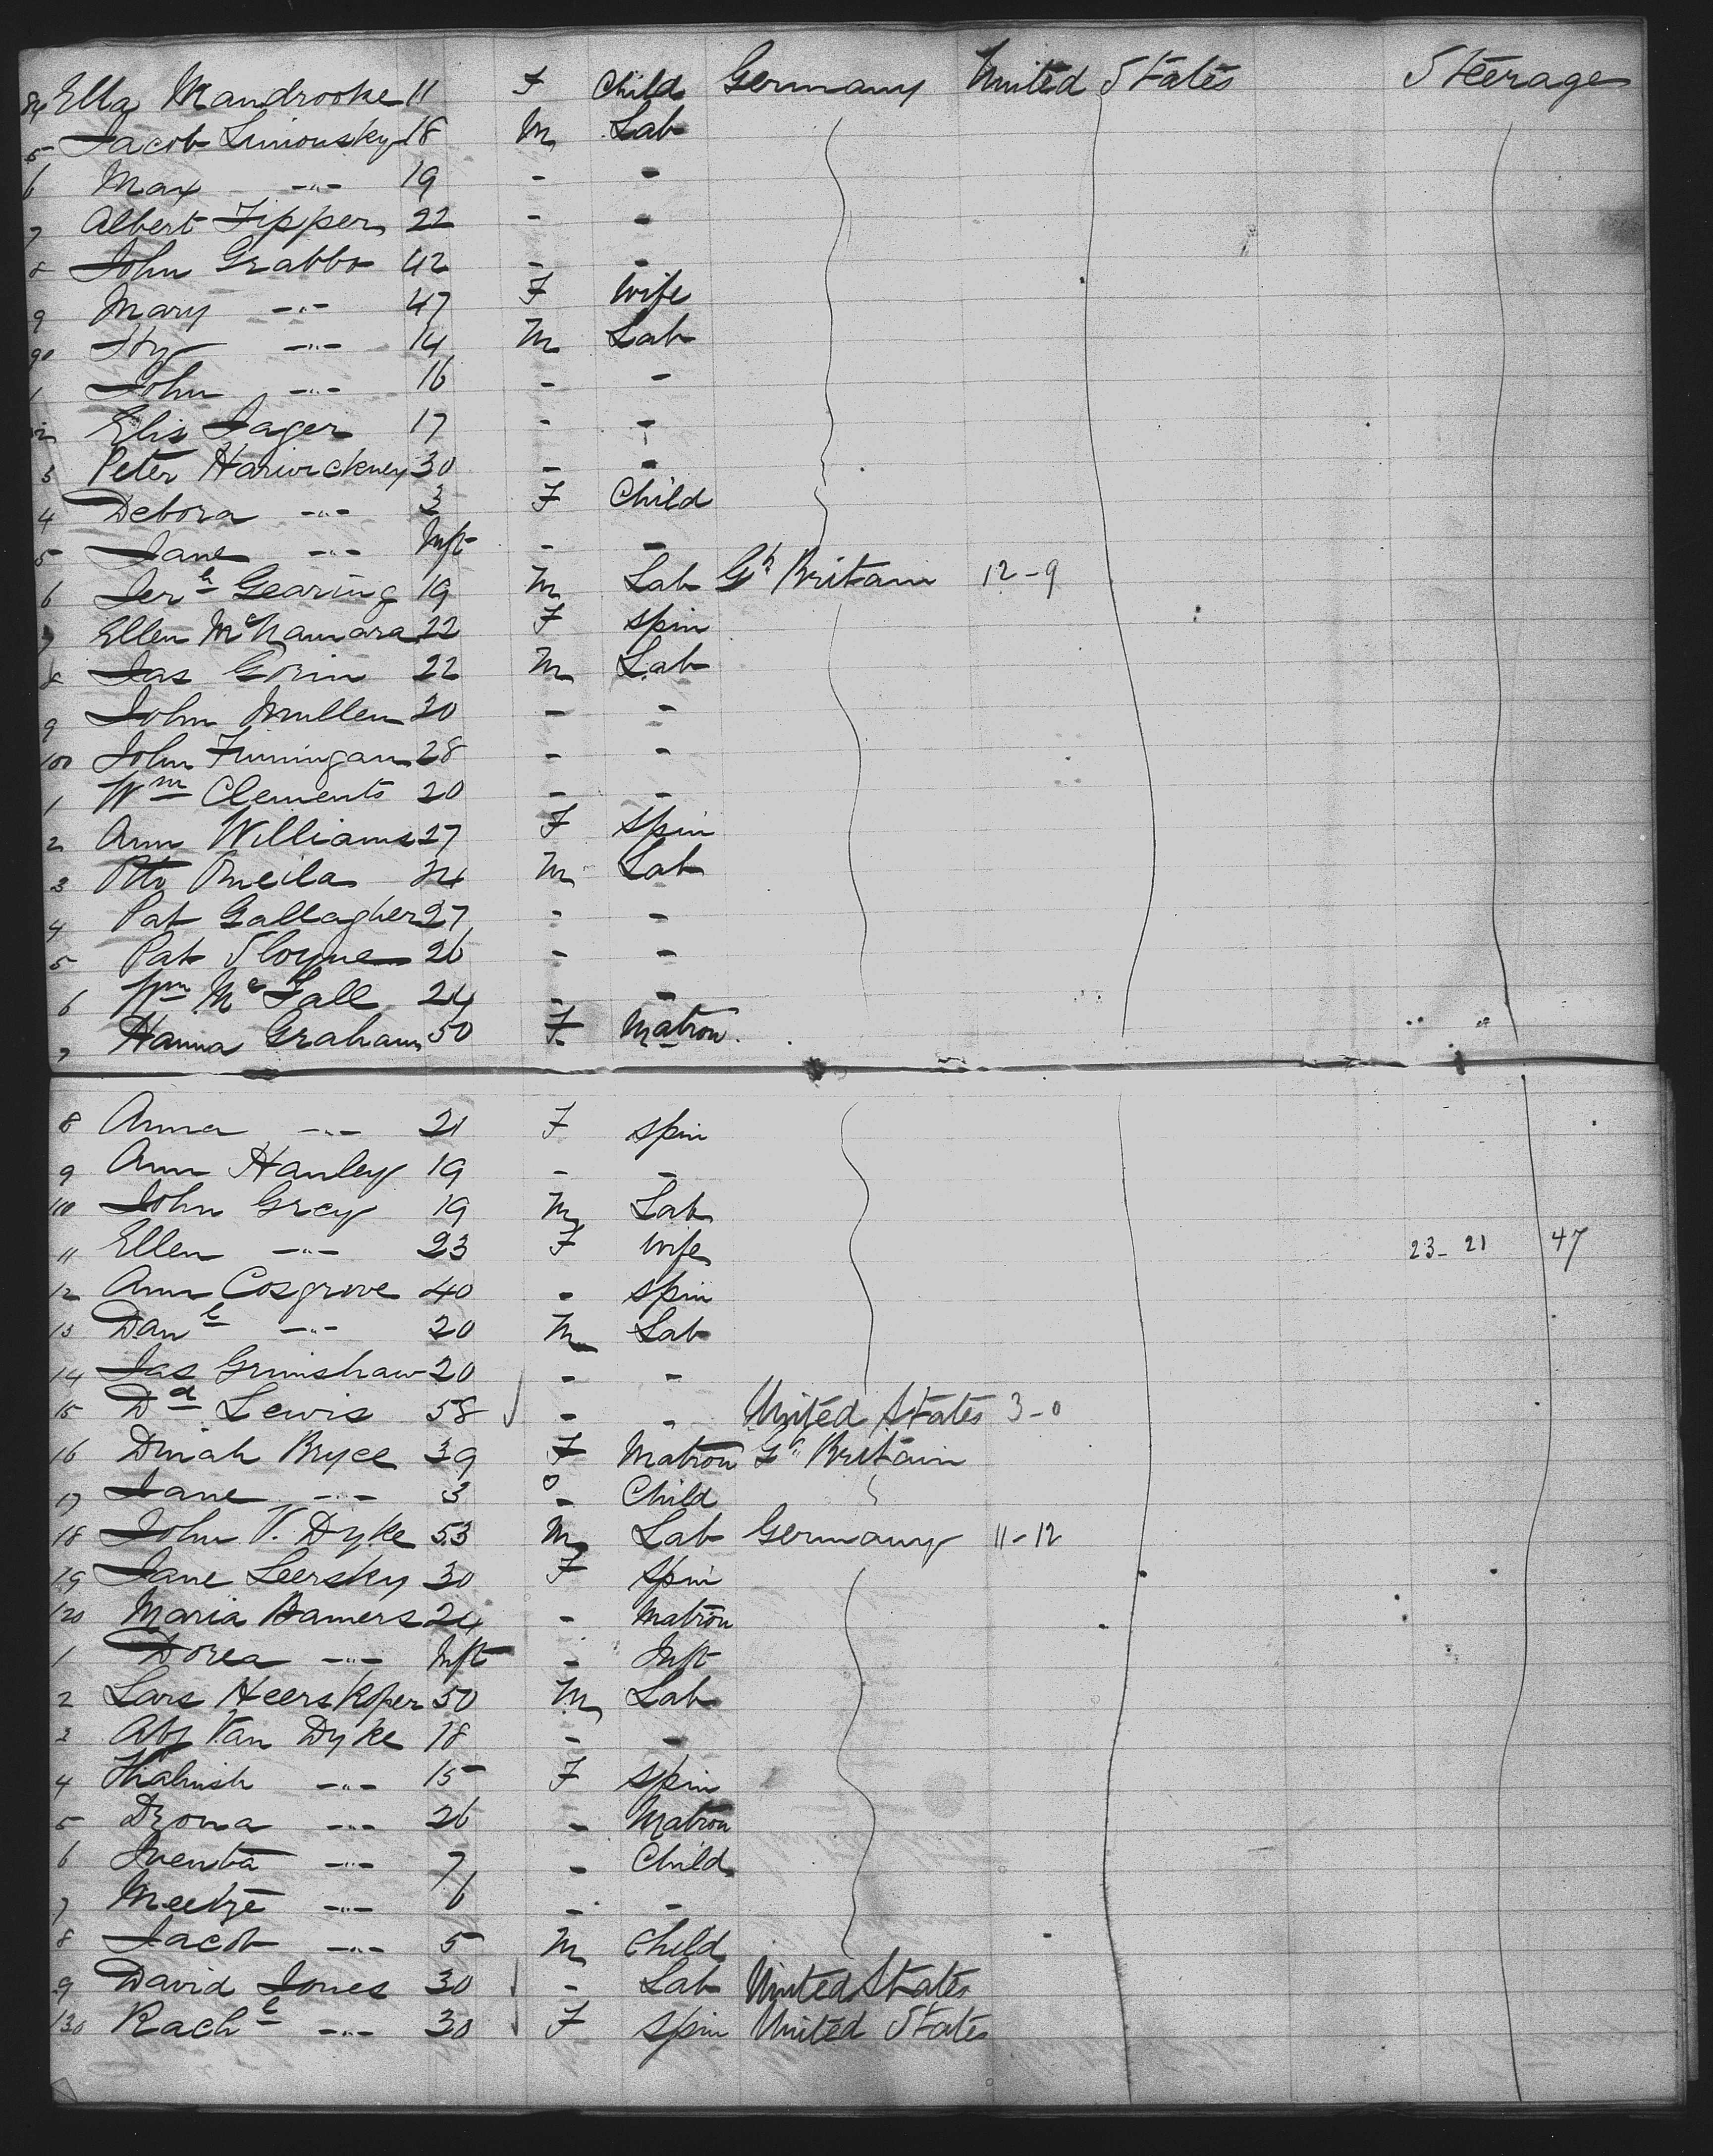 84 Ella Mandrooke 11 F Child Germany United States Steerage
5 Jacob Limousky 18 M Lab
6 Max -"- 19 - -
7 Albert Tipper 22 - -
8 John Grabbo 42 - -
9 Mary -"- 47 F Wife
90 Hy -"- 14 M Lab
1 John -"- 16 - -
2 Elis Jager 17 - -
3 Peter Harwickney 30 - -
4 Debora -"- 3 F Child
5 Jane -"- Inft - -
6 Jerh Gearing 19 M Lab Gt Britain 12-9
7 Ellen McNamara 22 F Spin
8 Jas Gorin 22 M Lab
9 John Mullen 20 - -
100 John Finningan 28 - -
1 Wm Clements 20 - -
2 Ann Williams 27 F Spin
3 Otto 24 M Lab
4 Pat Gallagher 27 - -
5 Pat Sloyne 26 - -
6 Wm McFall 24 - -
7 Hanna Graham 50 F Matron
8 Anna -"- 21 F Spin
9 Ann Hanley 19 - -
110 John Grey 19 M Lab
11 Ellen -"- 23 F Wife 23-21 47
12 Ann Cosgrove 40 - Spin
13 Danl -"- 20 M Lab
14 Jas Grimshaw 20 - -
15 Dd Lewis 58 - - United States 3-0
16 Dinah Bryce 39 F Matron Gt Britain
17 Jane -"- 3 - Child
18 John V. Dyke 53 M Lab Germany 11-12
19 Jane Leersky 30 F Spin
120 Maria Bamers 24 - Matron
1 Dorea -"- Inft - Inft
2 Lars Heerskoper 50 M Lab
3 Abj Van Dyke 18 - -
4 -"- 15 F Spin
5 Dzona -"- 26 - Matron
6 -"- 7 - Child
7 Meetze -"- 6 - -
8 Jacob -"- 5 M Child
9 David Jones 30 - Lab United States
130 Rachl -"- 30 F Spin United States